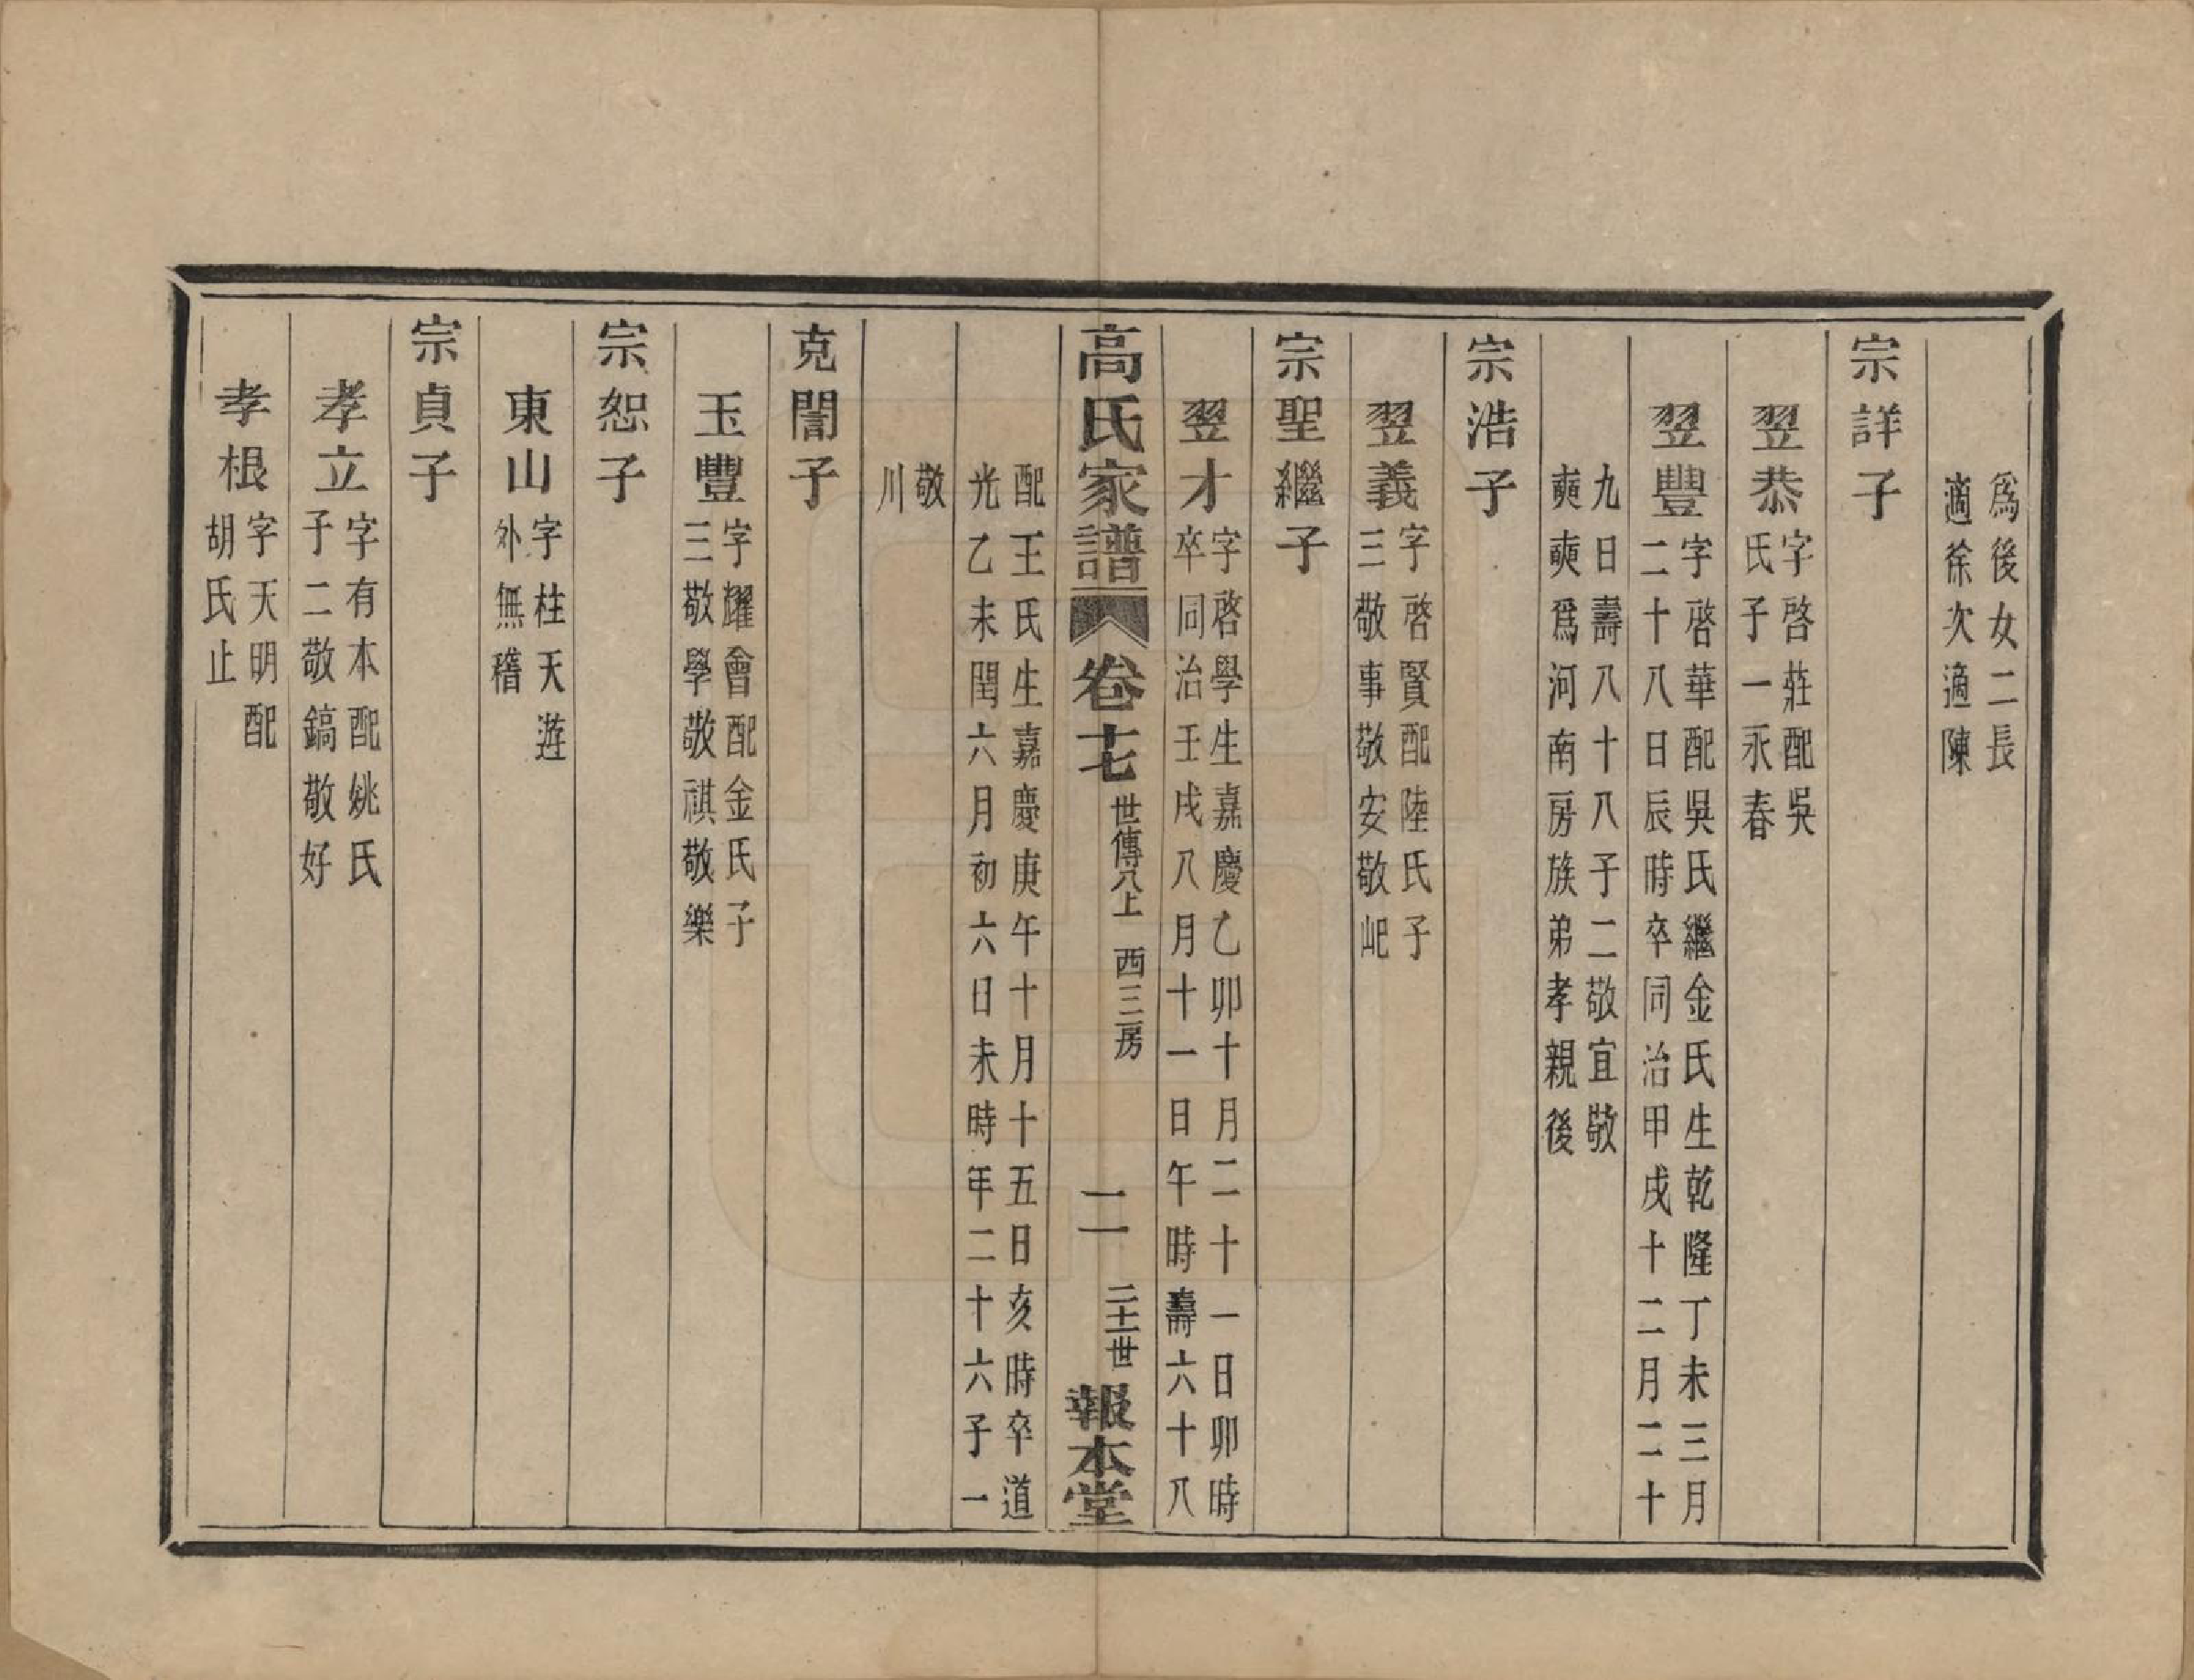 爲後女二長
適徐次適陳
宗詳子
翌恭
字啓莊配吳
氏子一永春
翌豐
字啓華配吳氏繼金氏生乾隆丁未三月
二十八日辰時卒同治甲戌十二月二十
九日壽八十八子二敬宜敬
奭奭爲河南房族弟孝親後
宗浩子
翌義
字啓賢配陸氏子
三敬事敬安敬屺
宗聖繼子
翌才
字啓學生嘉慶乙卯十月二十一日卯時
卒同治壬戌八月十一日午時壽六十八
高氏家譜
卷十七
世傳八上 西三房
二
二十一世
報本堂
配王氏生嘉慶庚午十月十五日亥時卒道
光乙未閏六月初六日未時年二十六子一
敬
川
克誾子
玉豐
字耀會配金氏子
三敬學敬祺敬樂
宗恕子
東山
字柱天遊
外無稽
宗貞子
孝立
字有本配姚氏
子二敬鎬敬好
孝根
字天明配
胡氏止